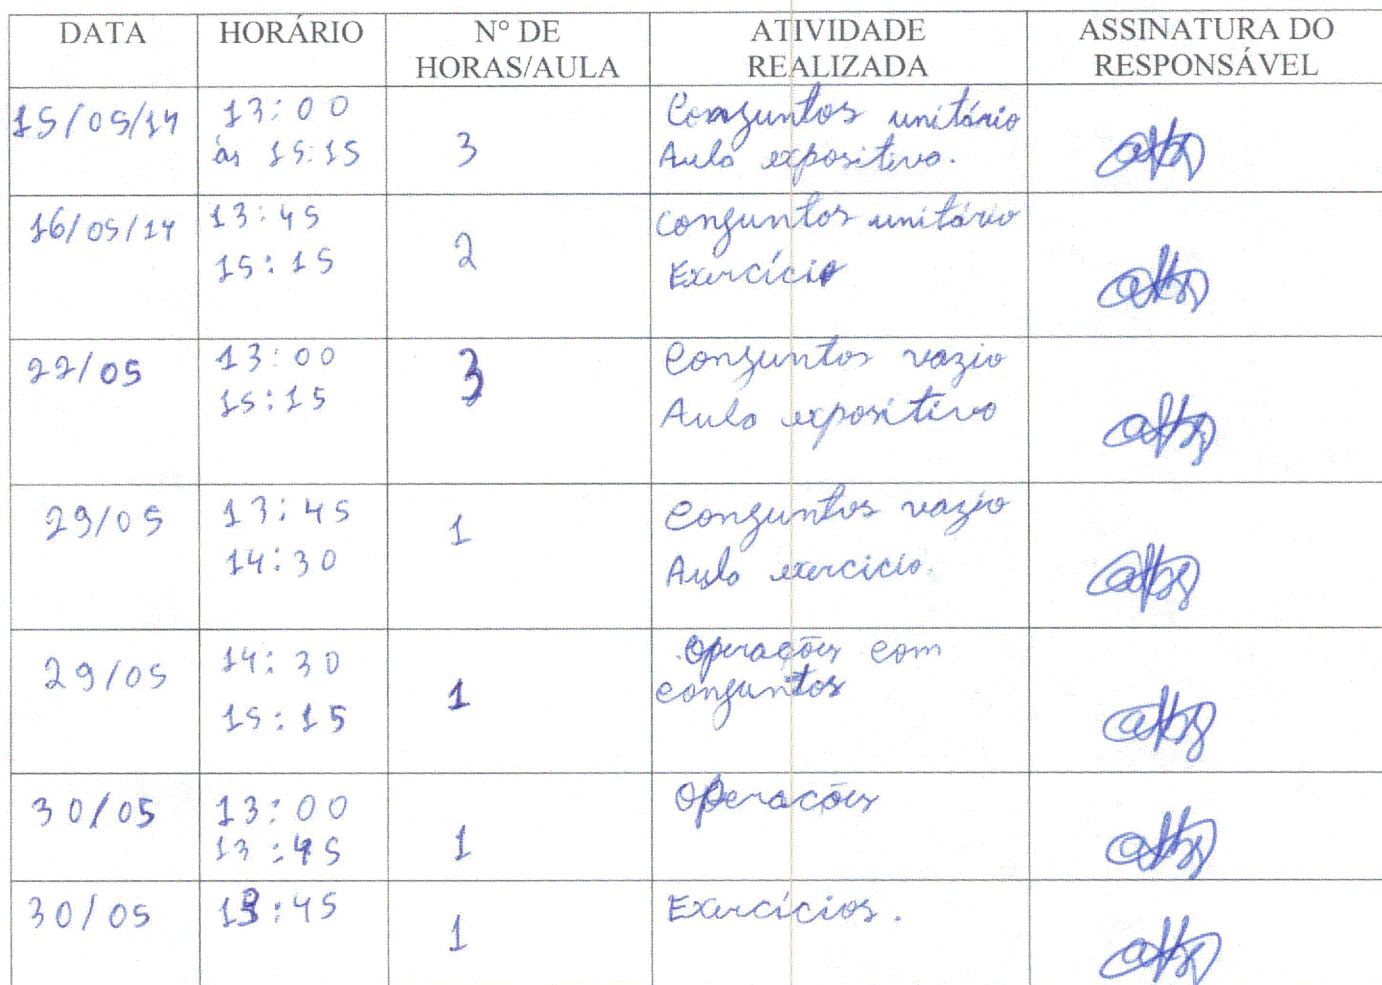 DATA HORÁRIO N° DE HORAS/AULA ATIVIDADE REALIZADA ASSINATURA DO RESPONSÁVEL
15/05/14 13:00 3 Conjuntos unitário
às 15:15 Aula expositiva.
16/05/14 13:45 2 conjuntos unitário
15:15 Exercício
22/05 13:00 3 Conjuntos vazio
15:15 Aula expositiva
29/05 13:45 1 Conjuntos vazio
14:30 Aula exercicio.
29/05 14:30 1 Operações com
15:15 conjuntos
30/05 13:00 1 Operacões
13:45
30/05 13:45 1 Exercícios.